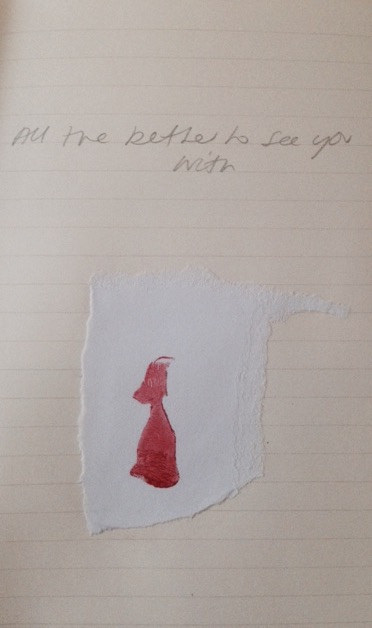 All the better to see you
with